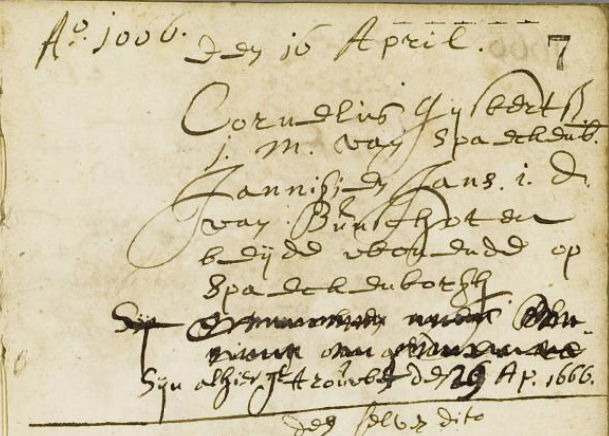 Aº. 1666. den 16 April. 7
Cornelius Gysberts
j. m. van Spaeckenb.
Jannisjen Jans. j. d.
van Bunschoten
beijde wonende op
Spaeckenborgh
Syn alhier getrouwt den 29 Ap. 1666.
den selver dito